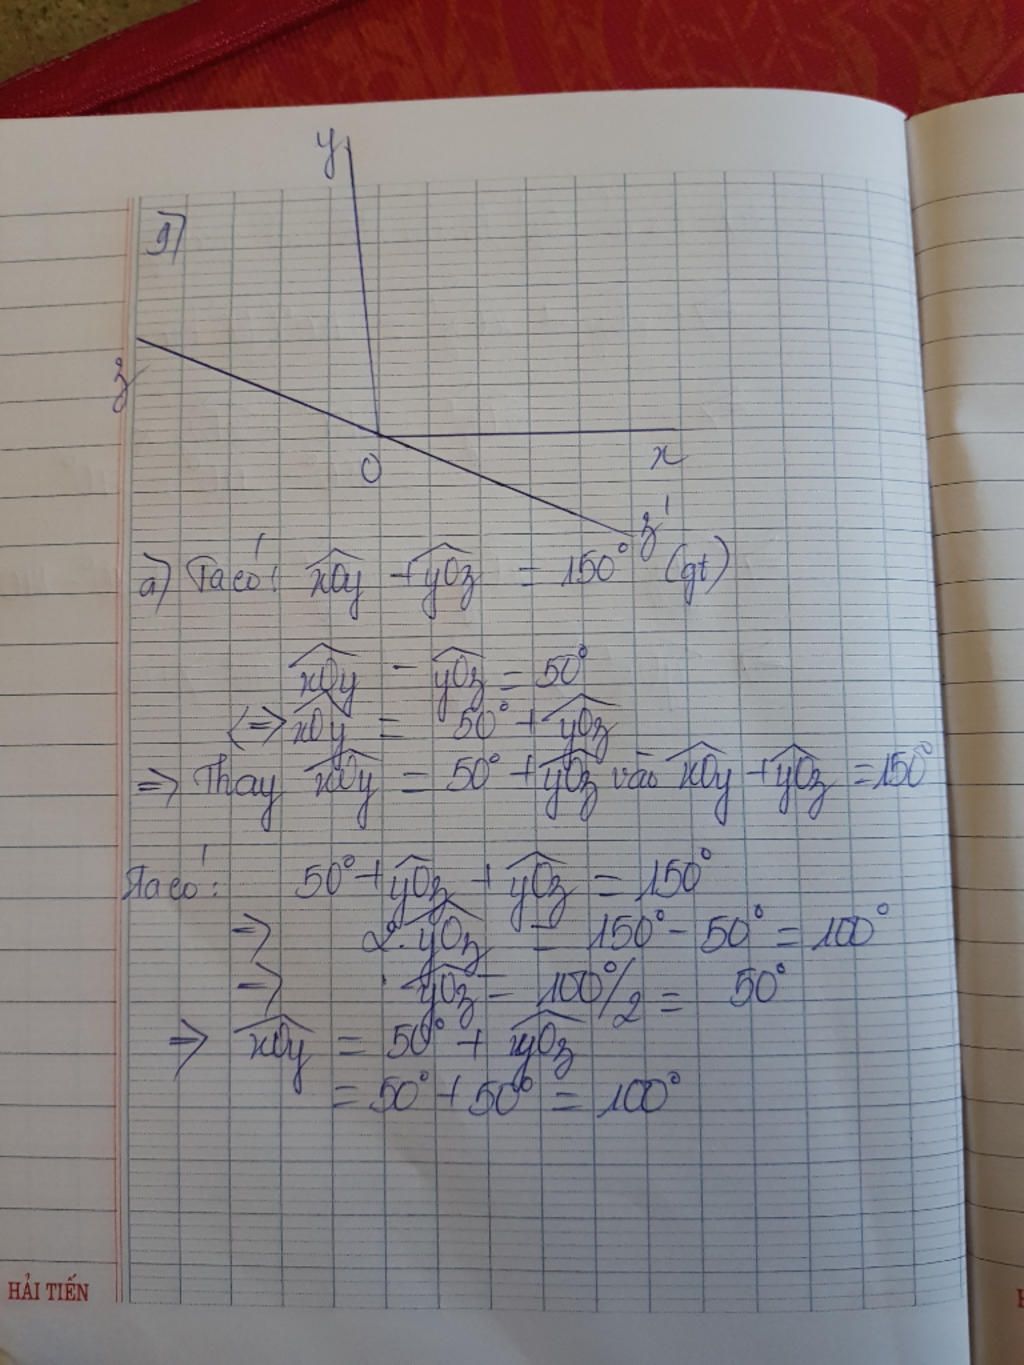 y
9)
z
O
x
z'
a) Ta có: xOy + yOz = 150° (gt)
xOy - yOz = 50°
<=> xOy = 50° + yOz
=> Thay xOy = 50° + yOz vào xOy + yOz = 150°
Ta có: 50° + yOz + yOz = 150°
=> 2.yOz = 150° - 50° = 100°
=> yOz = 100°/2 = 50°
=> xOy = 50° + yOz
= 50° + 50° = 100°
HẢI TIẾN
H